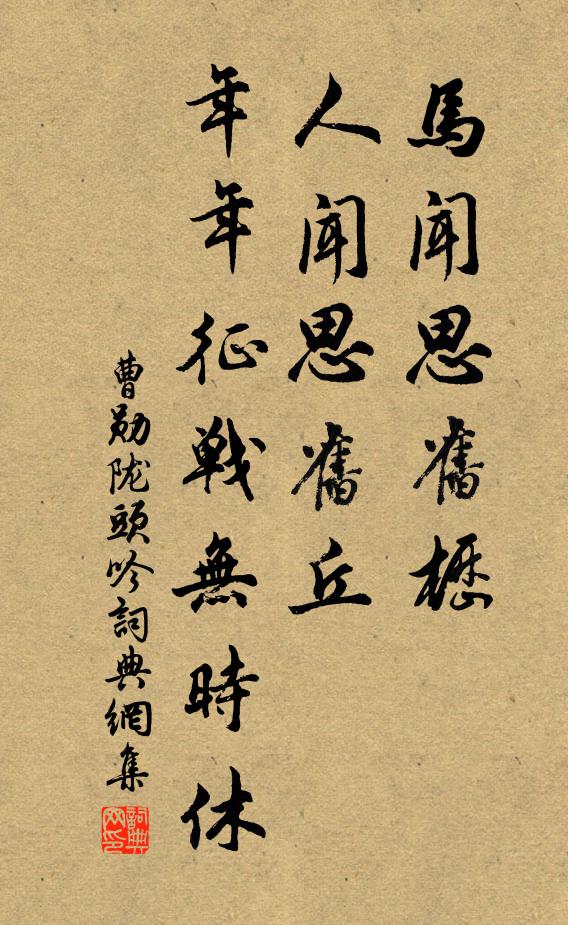 馬聞思舊櫪
人聞思舊丘
年年征戰無時休
曹勛陇頭吟詞典網集
詞典网印